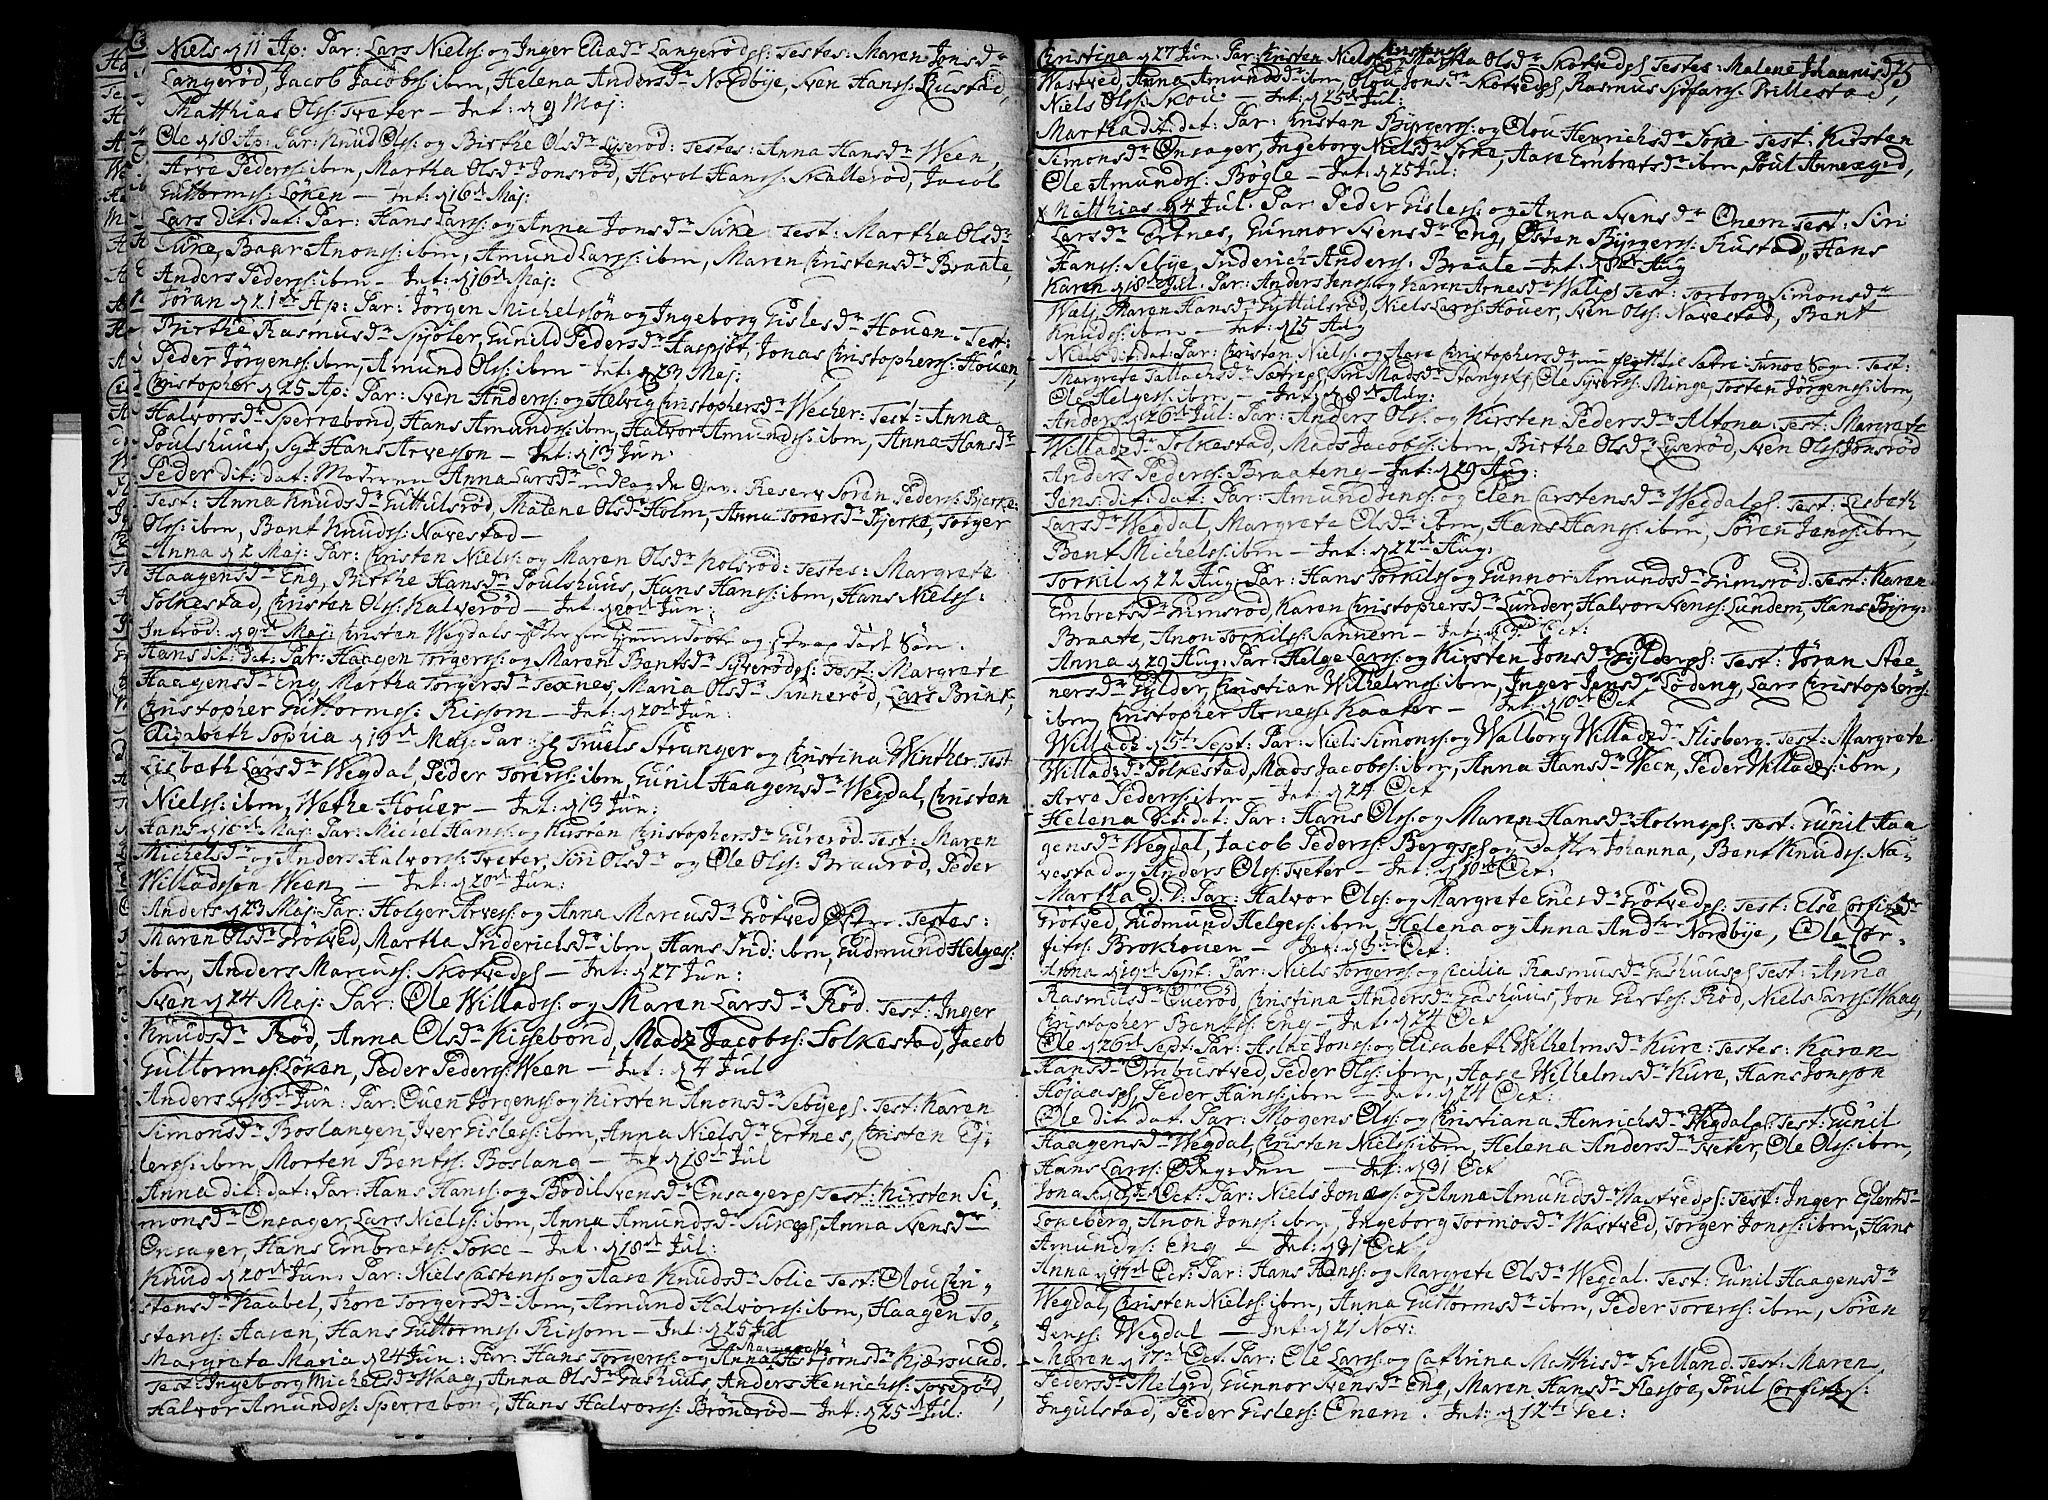 Niels d 11 Ap: Par: Lars Niels: og Inger Eliæd: Langerøds: Testes: Maren Jonsdr
Langerød, Jacob Jacobs: ibm, Helena Andersdr Nordbye, Sven Hanss: Bustad,
Matthias Ols: Tveter – Int: d 9 Maj:
Ole d 18 Ap: Par: Knud Ols: og Birthe Olsdr Lyserød: Testes: Anna Hansdr Ween,
Arve Peders: ibm, Martha Olsdr Jonsrød, Hovol Hans: Skallerød, Jacob
Guttorms: Løken – Int: d 16 Maj:
Lars dit: dat: Par: Hans Lars: og Anna Jonsdr Lure Test: Martha Olsdr
Lure, Baar Anons: ibm, Amund Lars: ibm, Maren Christensdr Braate,
Anders Peders: ibm – Int: d 16 Maj:
Jøran d 21 Ap: Par: Jørgen Michelssøn og Ingeborg Gislesdr Houen – Test:
Birthe Rasmusdr Spjøler, Gunild Pedersdr Haspjøt, Jonas Christophers: Houen,
Peder Jørgens: ibm, Amund Ols: ibm – Int: d 23 Maj:
Christopher d 25 Ap: Par: Sven Anders: og Helvig Christophersdr Wecher: Test: Anna
Halvorsdr Sperrebond, Hans Amunds: ibm, Halvor Amunds: ibm, Anna Hansdr
Poulshuus, Hans Arvesson – Int: d 13 Jun
Peder dit: dat: Moderen Anna Larsdr udlagde Søren Peders: Bjerke
Test: Anna Knudsdr Guttulsrød, Malene Olsdr Holm, Anna Toresdr Bjerke, Torger
Ols: ibm, Bent Knuds: Navestad –
Anna d 2 Maj: Par: Christen Niels: og Maren Olsdr Kolsrød: Testes: Margrete
Haagensdr Eng, Birthe Hansdr Poulshuus, Hans Hans: ibm, Hans Niels:
Tolkestad, Christen Ols: Kalverød – Int: d 20 Jun:
Introd: d 9 Maj: Christen Wegdals
Hans dit: dat: Par: Haagen Torgers: og Maren Bentsdr Syverøds: Test: Margrete
Haagensdr Eng, Martha Torgersdr Texnes, Maria Olsdr Sannerød, Lars Brink,
Christopher Guttorms: Rissom – Int: d 20 Jun:
Elizabeth Sophia d 13 Maj: Par: Truels Stranger og Christina Winther. Test
Lisbeth Larsdr Wegdal, Peder Tores: ibm, Gunil Haagensdr Wegdal, Christen
Niels: ibm, Wethe Houer – Int: d 13 Jun:
Hans d 16 Maj: Par: Michel Hans: og Kirsten Christophersdr Gurerød. Test: Maren
Michelsdr og Anders Halvors: Tveter, Siri Olsdr og Ole Ols: Braurød, Peder
Willadssøn Ween – Int: d 20 Jun:
Anders d 23 Maj: Par: Holger Arves: og Anna Marcusdr Grøtved Testes:
Maren Olsdr Grøtved, Martha Inderichsdr ibm, Hans Ind: ibm, Gudmund Helges:
ibm, Anders Marcus: Skotveds – Int: d 27 Jun:
Sven d 24 Maj: Par: Ole Willads: og Maren Larsdr Rød. Test: Inger
Knudsdr Rød, Anna Olsdr Kissebond, Madz Jacobs: Tolkestad, Jacob
Guttorms: Løken, Peder Peders: Ween – Int: d 4 Jul
Anders d 13 Jun: Par: Ouen Jørgens: og Kirsten Anonsdr Sebyes. Test: Karen
Simonsdr Boslangen, Iver Gisles: ibm, Anna Nielsdr Ertnes, Christen Ej-
lers: ibm, Morten Bents: Boslang – Int d 18 Jul
Anna dit: dat: Par: Hans Hans: og Bodil Svensdr Onsagers Test: Kirsten Si-
monsdr Onsager, Lars Niels: ibm, Anna Amundsdr Lures, Anna Svensdr
Onsager, Hans Embrets: Foke – Int: d 18 Jul:
Knud d 20 Jun: Par: Niels Castens: og Aase Knudsdr Solie Test: Olou Chri-
stensdr Kaabel, Thore Torgersdr ibm, Amund Halvors: ibm, Haagen To-
stens: Aasen, Hans Guttorms: Rissom – Int: d 25 Jul
Margrete Maria d 24 Jun: Par: Hans Torgers: og Anna Margrete Asbjørnsdr Kjærsund.
Test: Ingeborg Michelsdr Waag, Anna Olsdr Gashuus, Anders Henrichs: Torerød,
Halvor Amunds: Sperrebond, Hans Halvors: Brønerød – Int: d 25 Jul:
75
Christina d 27 Jun: Par: Christen Niels: og Martha Olsdr Skotveds Testes: Malene Johannisdr
Wastved, Anna Amundsdr ibm, Olou Jonsdr Skotveds, Rasmus Sjøfars: Prillestad,
Niels Ols: Skoie – Int: d 25 Jul:
Martha dit: dat: Par: Christen Byrgers: og Olou Henrichsdr Foke Test: Kirsten
Simonsdr Onsager, Ingeborg Nielsdr Foke, Aase Embretsdr ibm, Poul Annexgd,
Ole Amunds: Bøgle – Int: d 25 Jul:
x Matthias d 4 Jul. Par: Peder Gisles: og Anna Svensdr Onem Test: Siri
Larsdr Ertnes, Gunnor Svensdr Eng, Østen Byrgers: Rustad, Hans
Hans: Sebye, Inderich Anders: Braate – Int: d 8 Aug
Karen d 18 Jul. Par: Anders Jens: og Karen Arnesdr Walis Test: Torborg Simonsdr
Walj, Maren Hansdr Guttulsrød, Niels Lars: Houer, Sven Ols: Navestad, Bent
Knuds: ibm – Int: d 15 Aug
Niels dit: dat: Par: Christen Niels: og Aase Christophersdr Sætre Tunøe Sogn. Test:
Margrete Tallachsdr Sætres, Siri Madsdr Stangs, Ole Syvers: Minge, Tosten Jørgens: ibm,
Ole Helges: ibm – Int: d 8 Aug:
Anders d 26 Jul: Par: Anders Ols: og Kirsten Pedersdr Altona: Test: Margrete
Willadzdr Tolkestad, Mads Jacobs: ibm, Birthe Olsdr Lyserød, Sven Ols: Jonsrød
Anders Peders: Braateng – Int: d 29 Aug:
Jens: dit: dat: Par: Amund Jens: og Elen Carstensdr Wegdals: Test: Lisbeth
Larsdr Wegdal, Margrete Olsdr ibm, Hans Hans: ibm, Søren Jens: ibm,
Bent Michels: ibm – Int: d 22 Aug:
Torkil d 22 Aug: Par: Hans Torkils: og Gunnor Amundsdr Grimsrød. Test: Karen
Embretsdr Grimsrød, Karen Christophersdr Lunder, Halvor Svens: Lundem, Hans Byrg:
Braate, Anon Torkils: Sannem – Int: d 3 Oct:
Anna d 29 Aug: Par: Helge Lars: og Kirsten Jonsdr Gylders: Test: Jøran Stee-
nersdr Gylder, Christian Wilhelms: ibm, Inger Jensdr Lødeng, Lars Christophers:
ibm, Christopher Arnes: Kaater – Int: d 10 Oct
Willads d 5 Sept: Par: Niels Simons: og Walborg Willadzdr Flisberg. Test: Margrete
Willadzdr Tolkestad, Mads Jacobs: ibm, Anna Hansdr Ween, Peder Willads: ibm,
Arve Peders: ibm – Int: d 24 Oct
Helena Dit: dat: Par: Hans Ols: og Maren Hansdr Holms: Test: Gunil Haa
gensdr Wegdal, Jacob Peders: Bergs og Datter Johanna, Bent Knuds: Na-
vestad og Anders Ols: Tveter – Int: d 10 Oct:
Martha d. D: Par: Halvor Ols: og Margrete Ericsdr Grøtveds: Test: Else Corfitzdr
Grøtved, Gudmund Helges: ibm, Helena og Anna Andtre Nordbye, Ole Cor-
fits: Brokhouen – Int: d 3 Oct:
Anna d 19 Sept: Par: Niels Torgers: og Cecilia Rasmusdr Gashuuss Test: Anna
Rasmusdr Ouerød, Christina Andersdr Gashuus, Jon Gurts: Rød, Niels Lars: Waag,
Christopher Bents: Eng – Int: d 24 Oct
Ole d 26 Sept: Par: Aslac Jons: og Elisabeth Wilhelmsdr Kure: Testes: Karen
Hansdr Ombustved, Peder Ols: ibm, Aase Wilhelmsdr Kure, Hans Jonsøn
Højaas, Peder Hans: ibm – Int: d 24 Oct:
Ole dit: dat: Par: Mogens Ols: og Christiana Henrichsdr Wegdals: Test: Gunil
Haagensdr Wegdal, Christen Niels: ibm, Helena Andersdr Tveter, Ole Ols: ibm,
Hans Lars: Ødegrden – Int: d 31 Oct
Jonas d 3 Oct: Par: Niels Jonas: og Anna Amundsdr Wastveds: Test: Inger Ejlertsdr
Loneberg, Anon Jons: ibm, Ingeborg Tormosdr Wastved, Torger Jons: ibm, Hans
Amunds: Eng – Int: d 31 Oct,
Anna d 17 Oct: Par: Hans Hans: og Margrete Olsdr Wegdal. Test: Gunil Haagensdr
Wegdal, Christen Niels: ibm, Anna Guttormsdr ibm, Peder Tores: ibm, Søren
Jens: Wegdal – Int: d 21 Nov:
Maren d 17 Oct. Par: Ole Lars: og Cathrina Matthisdr Frelland. Test: Maren
Pedersdr Melgrd, Gunnor Svensdr Eng, Maren Hansdr Flessøe, Poul Corfitz:
Ingulstad, Peder Gisles: Onem. Int: d 12 Dec: